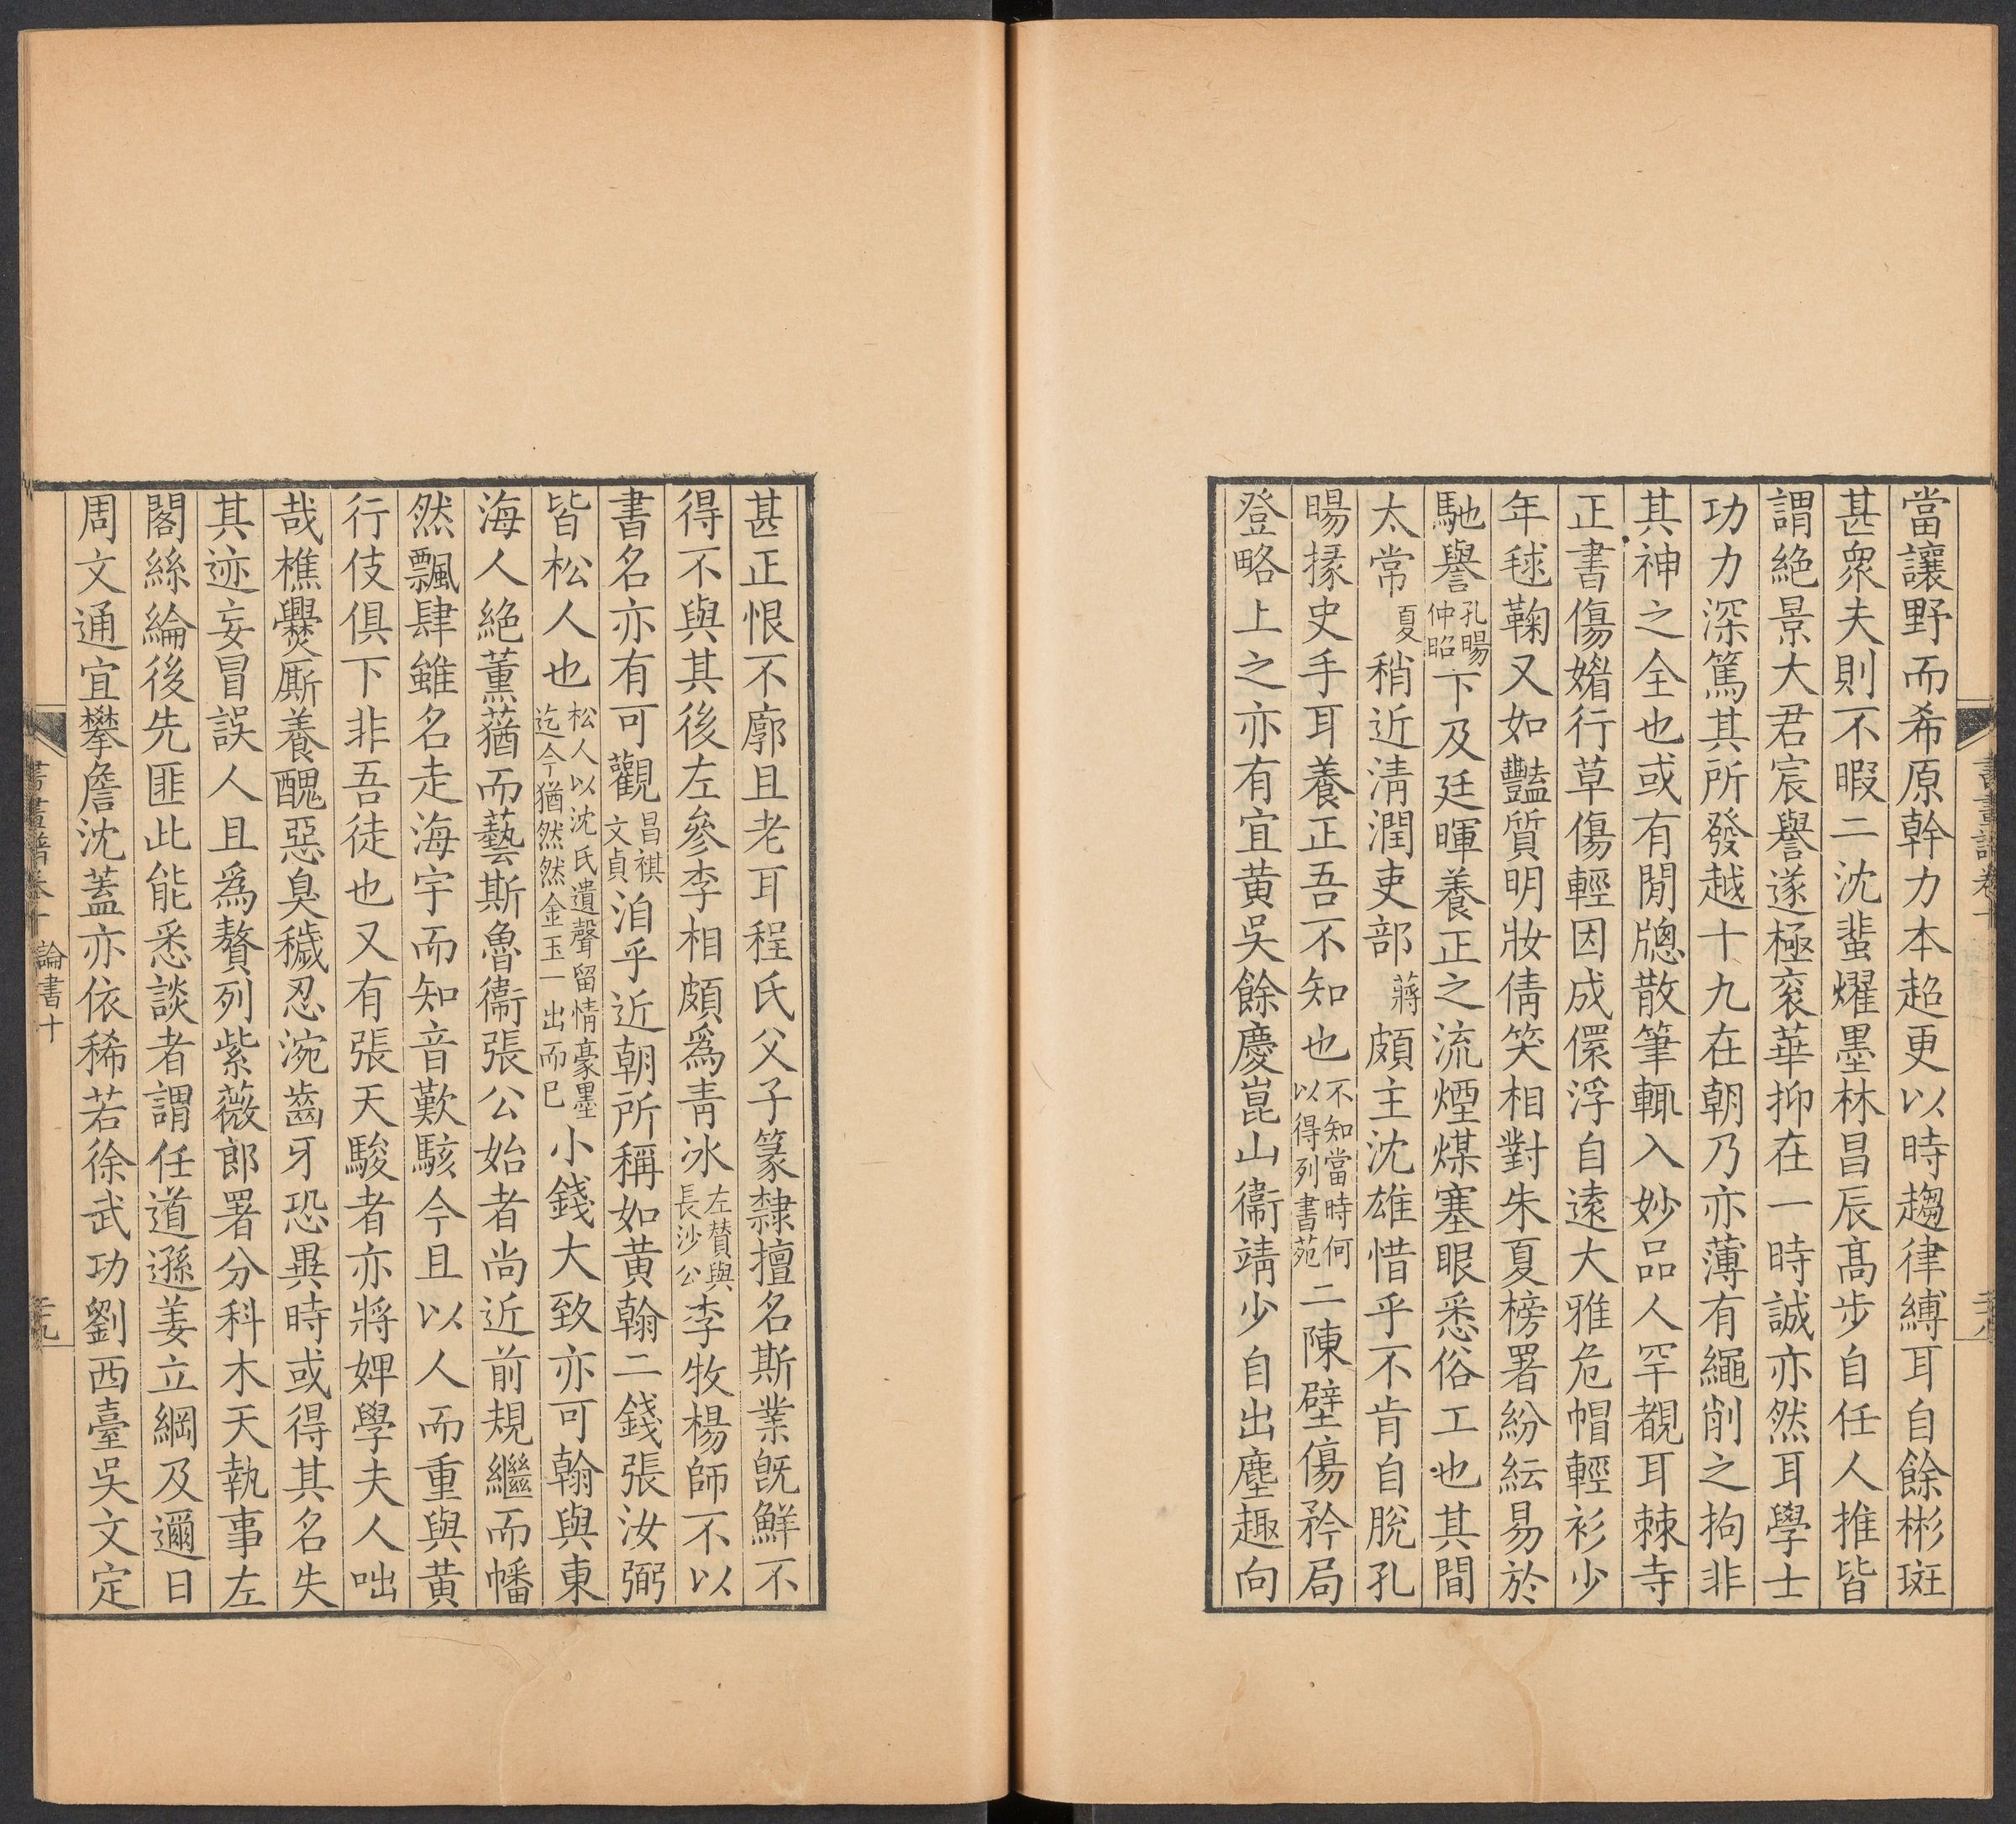 當讓野而希原幹力本超更以時趨律縛耳自餘彬斑
甚衆夫則不暇二沈蜚燿墨林昌辰髙步自任人推皆
謂絶景大君宸譽遂極衮華抑在一時誠亦然耳學士
功力深篤其所發越十九在朝乃亦薄有繩削之拘非
其神之全也或有閒牕散筆輒入妙品人罕覩耳棘寺
正書傷媚行草傷輕因成儇浮自逺大雅危帽輕衫少
年毬鞠又如豔質明妝倩笑相對朱夏榜署紛紜易於
馳譽孔暘仲昭下及廷暉養正之流煙煤塞眼悉俗工也其間
太常夏稍近淸潤吏部蔣頗主沈雄惜乎不肯自脫孔
暘掾史手耳養正吾不知也不知當時何以得列書苑二陳壁傷矜局
登略上之亦有宜黄吳餘慶崑山衞靖少自出塵趣向
書畫譜卷十
甚正恨不廓且老耳程氏父子篆隸擅名斯業旣鮮不
得不與其後左參李相頗爲青冰左賛與長沙公李牧楊師不以
書名亦有可觀昌祺文貞洎乎近朝所稱如黄翰二錢張汝弼
皆松人也松人以沈氏遺聲留情豪墨迄今猶然然金玉一出而已小錢大致亦可翰與東
海人絶薰蕕而藝斯魯衞張公始者尚近前規繼而幡
然飄肆雖名走海宇而知音歎駭今且以人而重與黄
行伎俱下非吾徒也又有張天駿者亦將婢學夫人咄
哉樵爨厮養醜惡臭穢忍涴齒牙恐異時或得其名失
其迹妄冒誤人且爲贅列紫薇郎署分科木天執事左
閣絲綸後先匪此能悉談者謂任道遜姜立綱及邇日
周文通宜攀詹沈蓋亦依稀若徐武功劉西臺吳文定
書畫譜卷十 論書十 三九